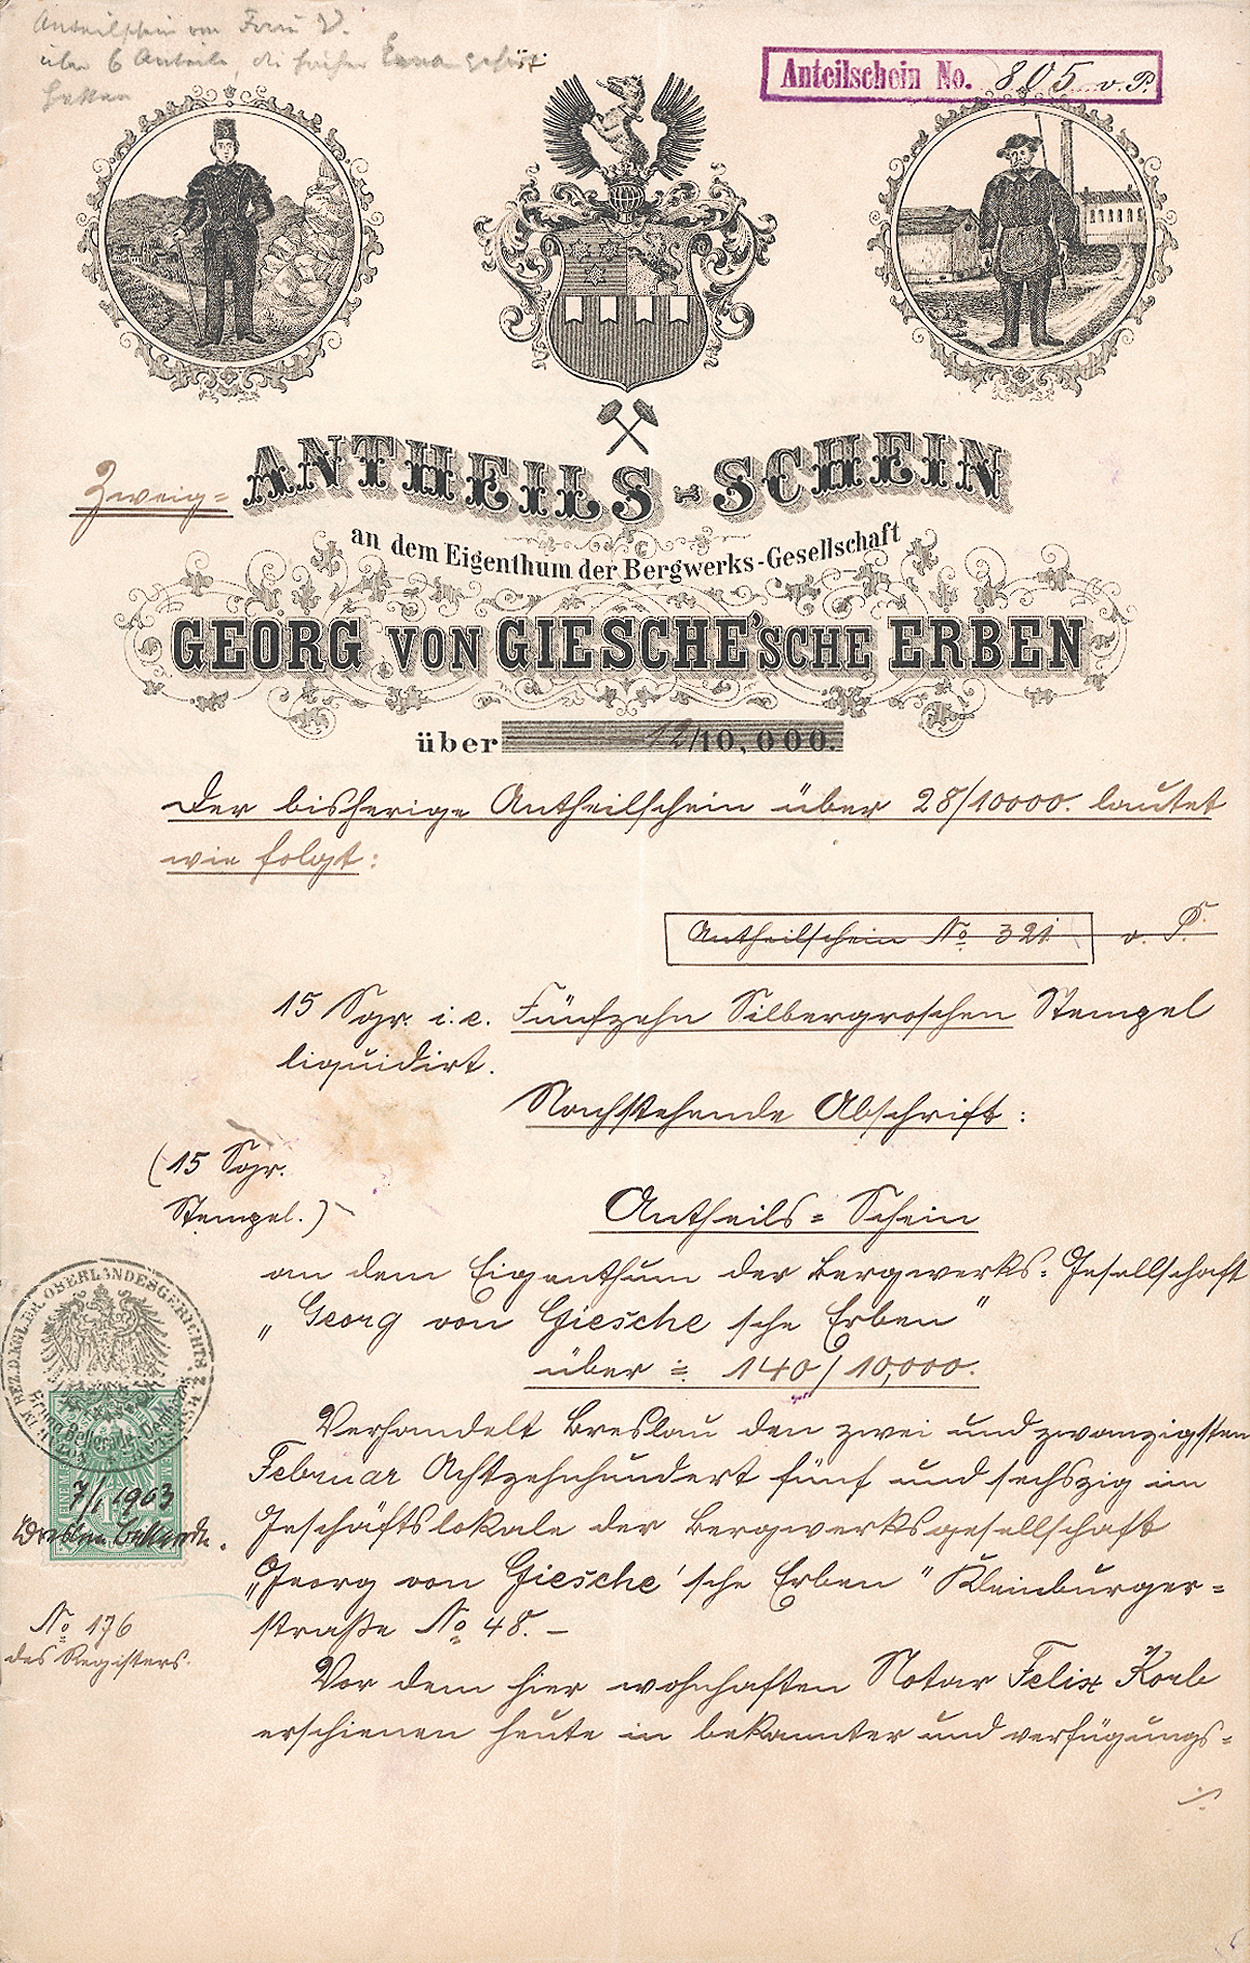 Anteilschein von Frau V.
über 6 Anteile, die früher Erna gehört
hatten
Anteilschein No. 805 v. P.
Zweig=
ANTHEILS-SCHEIN
an dem Eigenthum der Bergwerks-Gesellschaft
GEORG VON GIESCHE'SCHE ERBEN
über 12/10,000.
Der bisherige Antheilschein über 28/10000. lautet
wie folgt:
Antheilschein No 321 v. P.
15 Sgr. i. e. Fünfzehn Silbergroschen Stempel
liquidirt.
Nachstehende Abschrift:
(15 Sgr.
Stempel.)
Antheils=Schein
an dem Eigenthum der Bergwerks=Gesellschaft
„Georg von Giesche'sche Erben"
über = 140/10,000.
Verhandelt Breslau den zwei und zwanzigsten
Februar Achtzehnhundert fünf und sechszig im
Geschäftslokale der Bergwerksgesellschaft
„Georg von Giesche'sche Erben" Kleinburger=
straße No 48. –
Vor dem hier wohnhaften Notar Felix Korb
erschienen heute in bekannter und verfügungs=
IM BEZ. D. KGL. PR. OBERLANDESGERICHTS Z.
7/1 1903
No 176
des Registers.